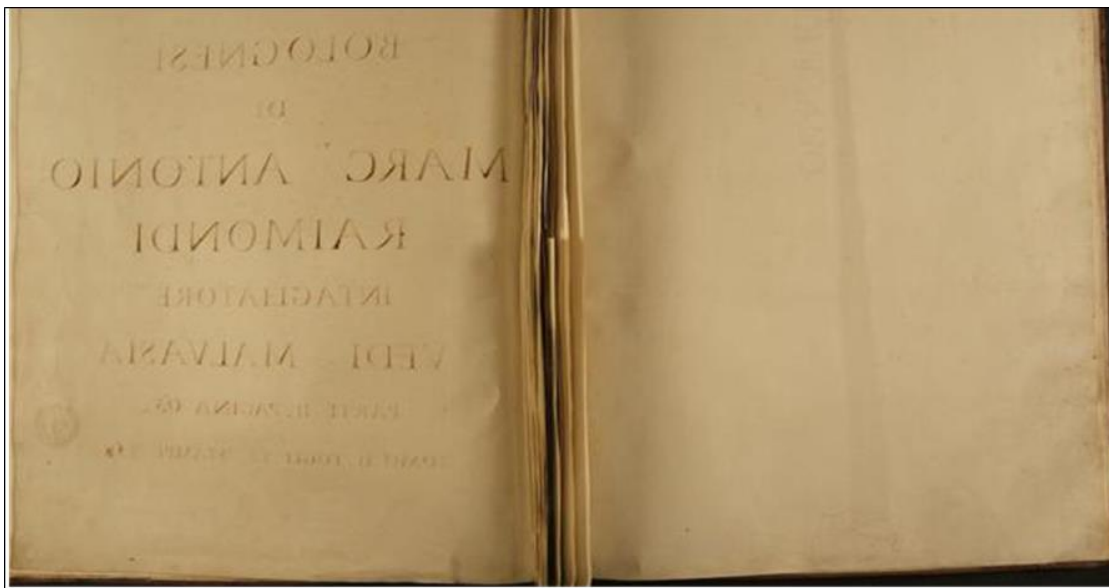 BOLOGNESI
DI
MARC' ANTONIO
RAIMONDI
INTAGLIATORE
VEDI MALVASIA
PARTE II. PAGINA 63.
TOMO II. FOGLI